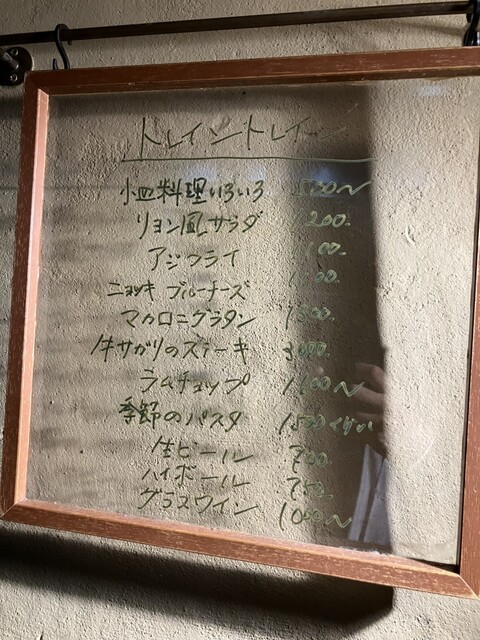 トレイントレイン
小皿料理いろいろ
リヨン風サラダ 1200.
アジフライ
ニョッキ ブルーチーズ
マカロニグラタン 1300.
牛サガリのステーキ 3000.
ラムチョップ 1100〜
季節のパスタ 1500
生ビール 700.
ハイボール 750.
グラスワイン 1000〜